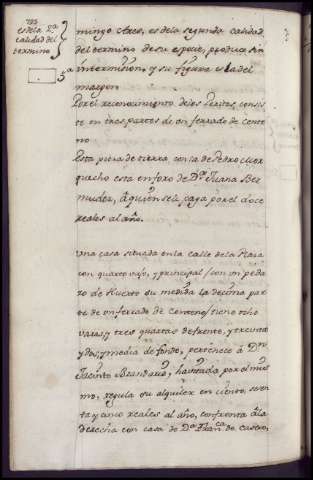 es de la 2ª
calidad del
termino
5ª
mingo Ares, es de la segunda calidad
del termino de su especie, produce sin
intermision, y su figura es la del
margen
Por el reconocimiento de los Peritos, consis
te en tres partes de un ferrado de cente
no
Esta pieza de tierra con la de Pedro
esta en foro de Dª Juana Ber
mudez, â quien se la paga por el doce
reales al año.
Una casa situada en la calle de la Plaza
con quarto vajo, y principal (con un peda
zo de Huerto su medida la decima par
te de un ferrado de Centeno) tiene ocho
varas, y tres quartas de frente, y treinta
y dos, y media de fondo, pertenece â Dn
Jacinto havitada por el mis
mo, regula su alquiler en ciento, seten
ta y cinco reales al año, confronta â la
derecha con casa de Dª Franca de Castro,